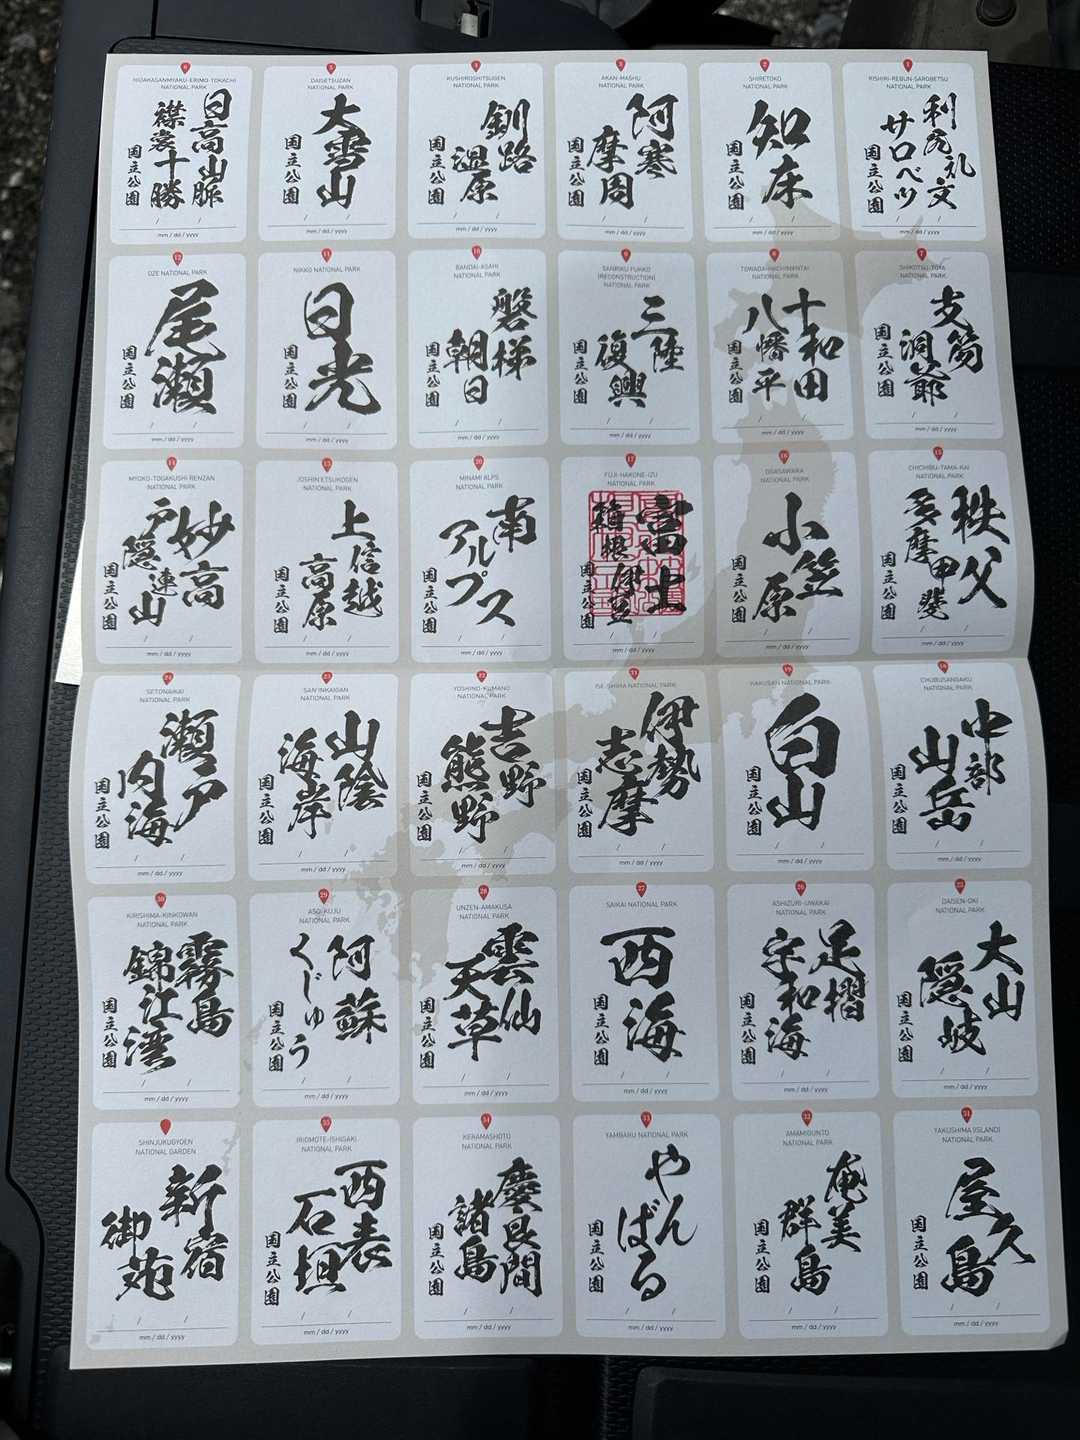 6
HIDAKASANMYAKU-ERIMO-TOKACHI
NATIONAL PARK
日高山脈
襟裳十勝
国立公園
/ /
mm / dd / yyyy
5
DAISETSUZAN
NATIONAL PARK
大雪山
国立公園
/ /
mm / dd / yyyy
4
KUSHIROSHITSUGEN
NATIONAL PARK
釧路
湿原
国立公園
/ /
mm / dd / yyyy
3
AKAN-MASHU
NATIONAL PARK
阿寒
摩周
国立公園
/ /
mm / dd / yyyy
2
SHIRETOKO
NATIONAL PARK
知床
国立公園
/ /
mm / dd / yyyy
1
RISHIRI-REBUN-SAROBETSU
NATIONAL PARK
利尻礼文
サロベツ
国立公園
/ /
mm / dd / yyyy
12
OZE NATIONAL PARK
尾瀬
国立公園
/ /
mm / dd / yyyy
11
NIKKO NATIONAL PARK
日光
国立公園
/ /
mm / dd / yyyy
10
BANDAI-ASAHI
NATIONAL PARK
磐梯
朝日
国立公園
/ /
mm / dd / yyyy
9
SANRIKU FUKKO
(RECONSTRUCTION)
NATIONAL PARK
三陸
復興
国立公園
/ /
mm / dd / yyyy
8
TOWADA-HACHIMANTAI
NATIONAL PARK
十和田
八幡平
国立公園
/ /
mm / dd / yyyy
7
SHIKOTSU-TOYA
NATIONAL PARK
支笏
洞爺
国立公園
/ /
mm / dd / yyyy
14
MYOKO-TOGAKUSHI RENZAN
NATIONAL PARK
妙高
戸隠連山
国立公園
/ /
mm / dd / yyyy
13
JOSHIN'ETSUKOGEN
NATIONAL PARK
上信越
高原
国立公園
/ /
mm / dd / yyyy
20
MINAMI ALPS
NATIONAL PARK
南
アルプス
国立公園
/ /
mm / dd / yyyy
17
FUJI-HAKONE-IZU
NATIONAL PARK
富士
箱根伊豆
国立公園
/ /
mm / dd / yyyy
16
OGASAWARA
NATIONAL PARK
小笠原
国立公園
/ /
mm / dd / yyyy
15
CHICHIBU-TAMA-KAI
NATIONAL PARK
秩父
多摩甲斐
国立公園
/ /
mm / dd / yyyy
24
SETONAIKAI
NATIONAL PARK
瀬戸
内海
国立公園
/ /
mm / dd / yyyy
23
SAN'INKAIGAN
NATIONAL PARK
山陰
海岸
国立公園
/ /
mm / dd / yyyy
22
YOSHINO-KUMANO
NATIONAL PARK
吉野
熊野
国立公園
/ /
mm / dd / yyyy
21
ISE-SHIMA NATIONAL PARK
伊勢
志摩
国立公園
/ /
mm / dd / yyyy
19
HAKUSAN NATIONAL PARK
白山
国立公園
/ /
mm / dd / yyyy
18
CHUBUSANGAKU
NATIONAL PARK
中部
山岳
国立公園
/ /
mm / dd / yyyy
30
KIRISHIMA-KINKOWAN
NATIONAL PARK
霧島
錦江湾
国立公園
/ /
mm / dd / yyyy
29
ASO-KUJU
NATIONAL PARK
阿蘇
くじゅう
国立公園
/ /
mm / dd / yyyy
28
UNZEN-AMAKUSA
NATIONAL PARK
雲仙
天草
国立公園
/ /
mm / dd / yyyy
27
SAIKAI NATIONAL PARK
西海
国立公園
/ /
mm / dd / yyyy
26
ASHIZURI-UWAKAI
NATIONAL PARK
足摺
宇和海
国立公園
/ /
mm / dd / yyyy
25
DAISEN-OKI
NATIONAL PARK
大山
隠岐
国立公園
/ /
mm / dd / yyyy
SHINJUKUGYOEN
NATIONAL GARDEN
新宿
御苑
/ /
mm / dd / yyyy
35
IRIOMOTE-ISHIGAKI
NATIONAL PARK
西表
石垣
国立公園
/ /
mm / dd / yyyy
34
KERAMASHOTO
NATIONAL PARK
慶良間
諸島
国立公園
/ /
mm / dd / yyyy
33
YAMBARU NATIONAL PARK
やんばる
国立公園
/ /
mm / dd / yyyy
32
AMAMIGUNTO
NATIONAL PARK
奄美
群島
国立公園
/ /
mm / dd / yyyy
31
YAKUSHIMA (ISLAND)
NATIONAL PARK
屋久島
国立公園
/ /
mm / dd / yyyy